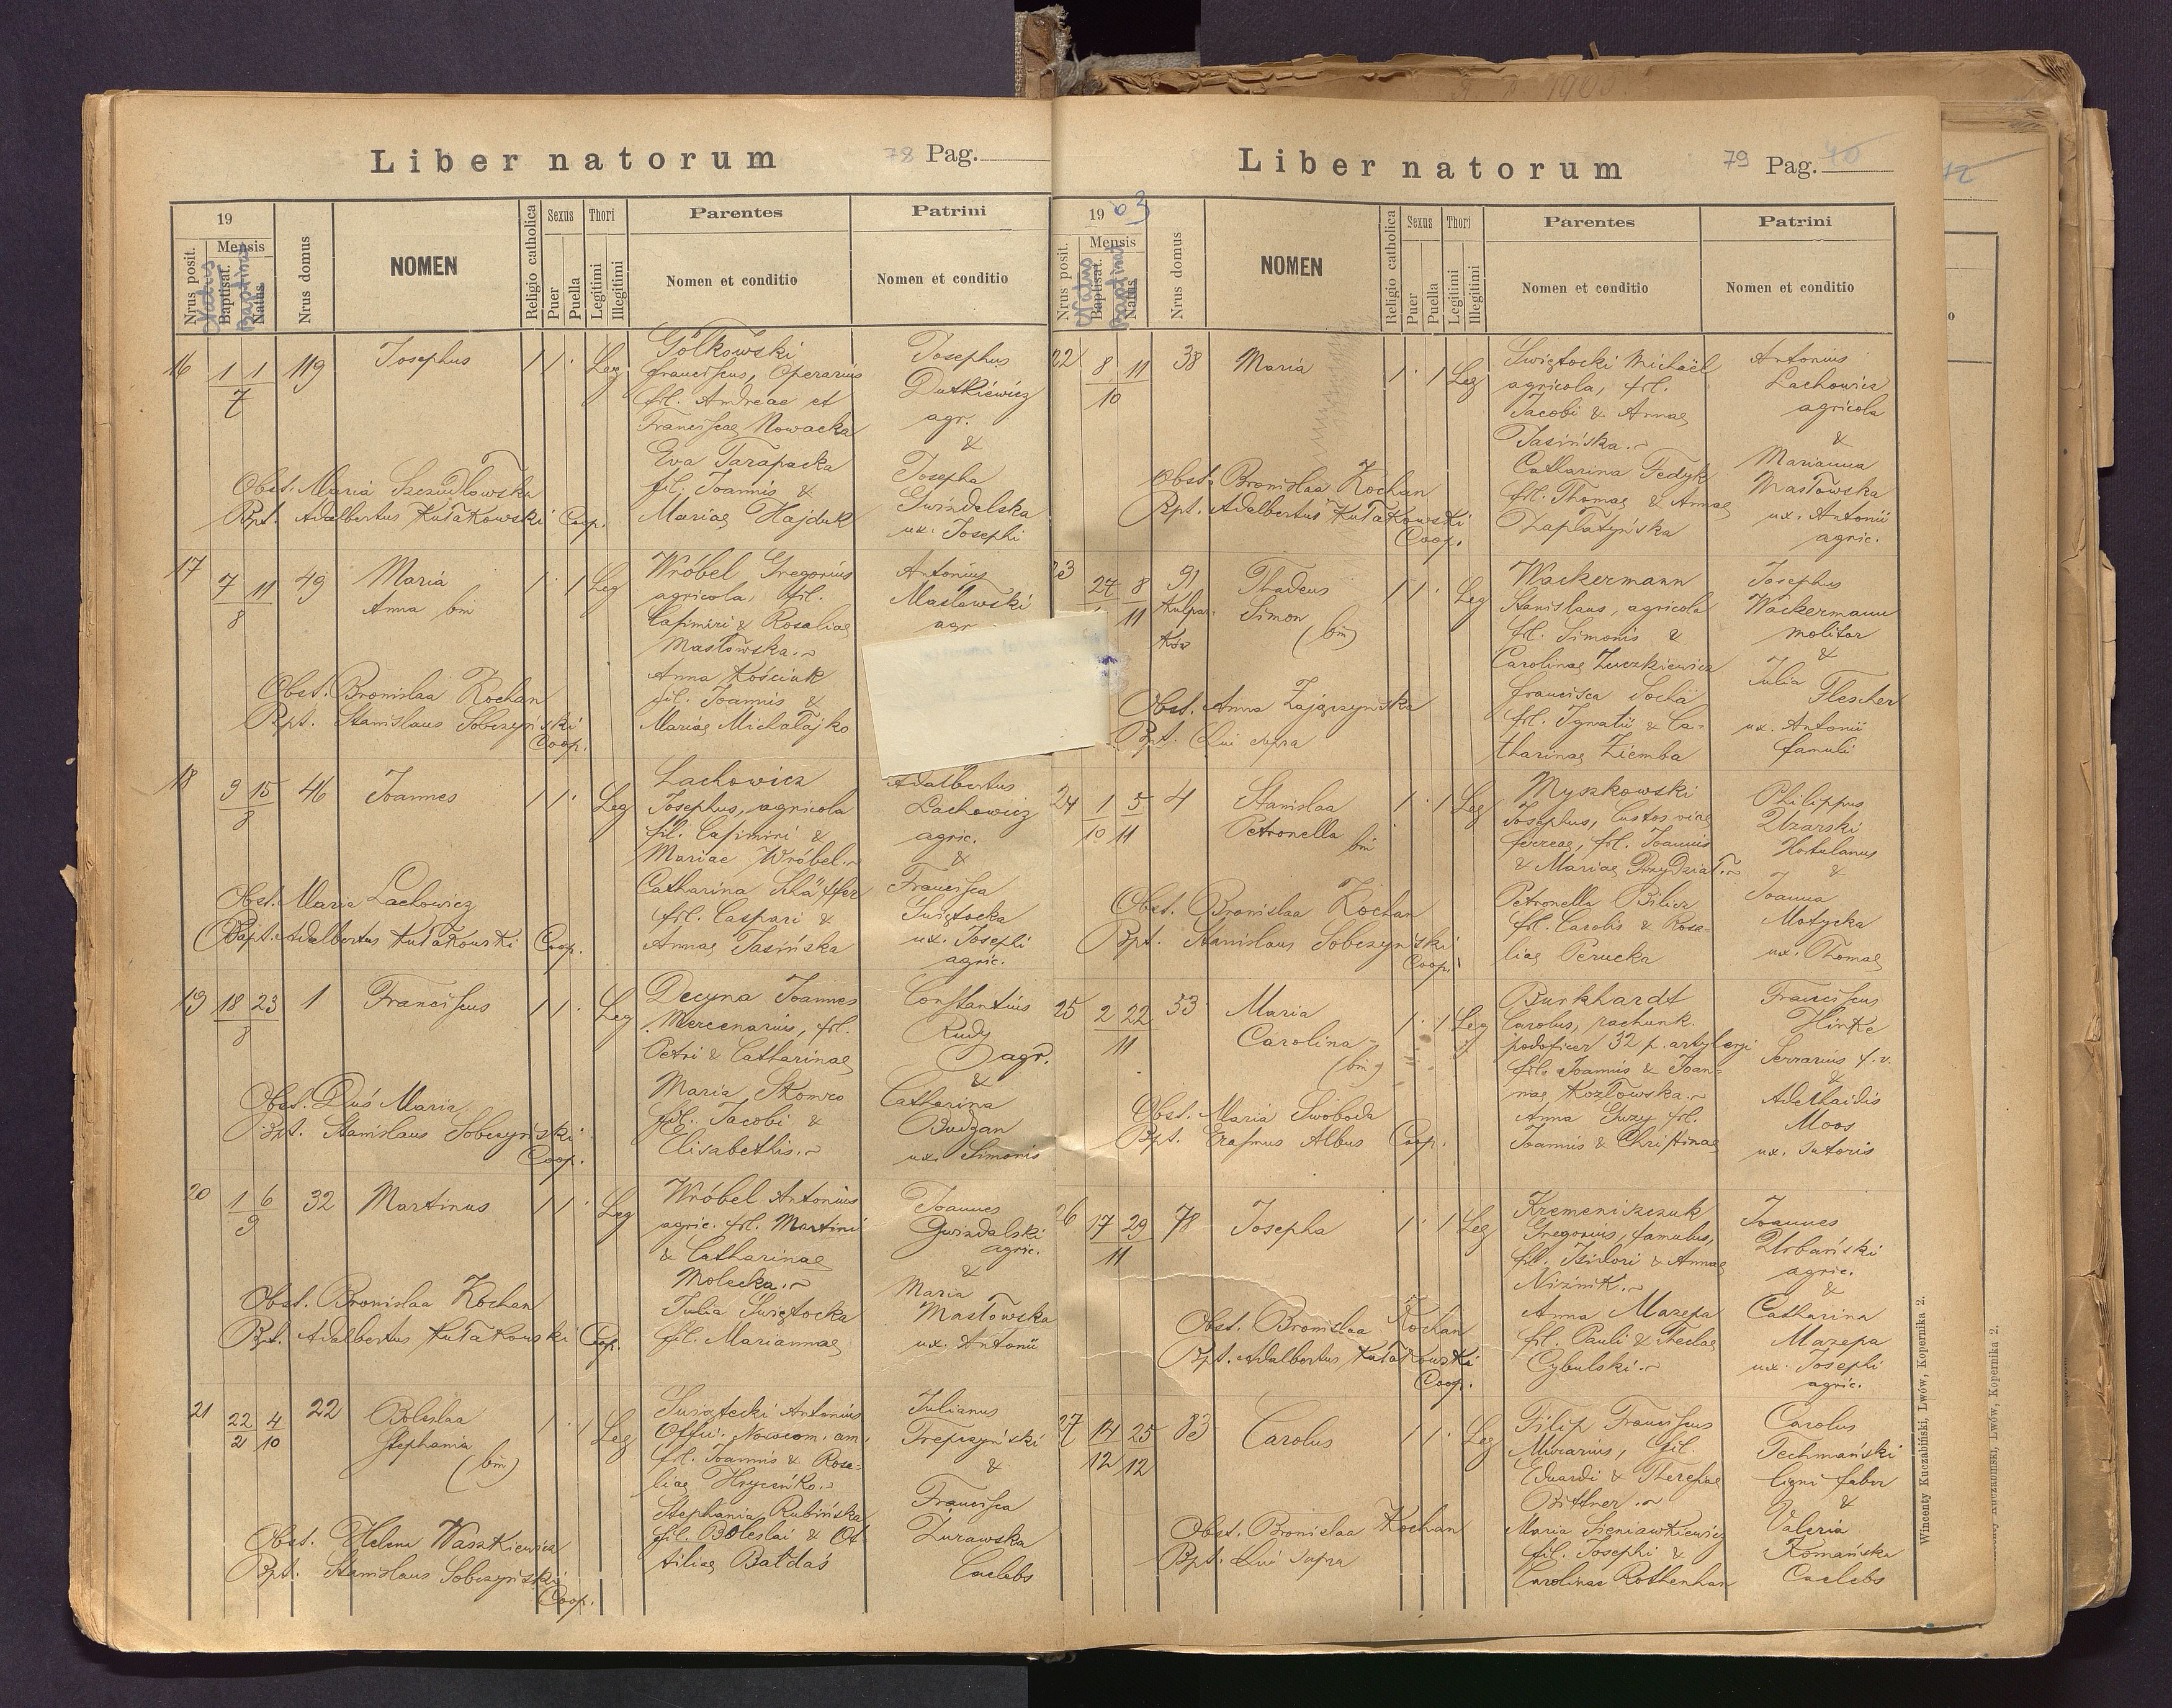 Liber natorum
78 Pag.
19
Mensis
Nrus posit.
Natus
Baptisat.
Baptisat
Natus
Nrus domus
NOMEN
Religio catholica
Sexus
Puer
Puella
Thori
Legitimi
Illegitimi
Parentes
Nomen et conditio
Patrini
Nomen et conditio
16 1 1 119 Josephus 1 1 · Leg
7
Gołkowski
Franciscus, Operarius
fil. Andreae et
Franciscae Nowacka
Eva Tarapacka
fil. Joannis &
Mariae Hajduk
Josephus
Dutkiewicz
agr.
&
Josepha
Gwizdalska
ux. Josephi
Obst. Maria Szczudłowska
Bpt. Adalbertus Kułakowski Coop.
17 7 11 49 Maria 1 · 1 Leg
8
Anna bin
Wróbel Gregorius
agricola, fil.
Casimiri & Rosaliae
Masłowska
Anna Kościuk
fil. Joannis &
Mariae Michałajko
Antonius
Masłowski
agr
Obst. Bronislaa Kochan
Bpt. Stanislaus Sobczyński
Coop.
18 9 15 46 Joannes 1 1 · Leg
8
Lachowicz
Josephus, agricola
fil. Casimiri &
Mariae Wróbel
Catharina Schäffer
fil. Caspari &
Annae Jasińska
Adalbertus
Lachowicz
agric.
&
Francisca
Świętocka
ux. Josephi
agric.
Obst. Maria Lachowicz
Bapt. Adalbertus Kułakowski Coop.
19 18 23 1 Franciscus 1 1 · Leg
8
Decyna Joannes
Mercenarius, fil.
Petri & Catharinae
Maria Skomro
fil. Jacobi &
Elisabethis
Constantius
Rudy
agr.
&
Catharina
Budzan
ux. Simonis
Obst. Duś Maria
Bpt. Stanislaus Sobczyński
Coop.
20 1 6 32 Martinus 1 1 · Leg
9
Wróbel Antonius
agric. fil. Martini
& Catharinae
Molecka
Julia Świętocka
fil. Mariannae
Joannes
Gwizdalski
agric.
&
Maria
Masłowska
ux. Antonii
Obst. Bronislaa Kochan
Bpt. Adalbertus Kułakowski Coop.
21 22 4 22 Boleslaa 1 · 1 Leg
2 10
Stephania
(bin)
Antonius
fil. Joannis & Rosa-
liae
Stephania Rubińska
fil. Boleslai & Ot-
tiliae Bałdaś
Julianus
Trepczyński
&
Francisca
Żurawska
Caelebs
Obst. Helena Waszkiewicz
Bpt. Stanislaus Sobczyński
Coop.
Liber natorum
79 Pag. 40
1903
Mensis
Nrus posit.
Natus
Baptisat.
Baptisat
Natus
Nrus domus
NOMEN
Religio catholica
Sexus
Puer
Puella
Thori
Legitimi
Illegitimi
Parentes
Nomen et conditio
Patrini
Nomen et conditio
22 8 11 38 Maria 1 · 1 Leg
10
Świętocki Michaël
agricola, fil.
Jacobi & Annae
Jasińska
Catharina Fedyk
fil. Thomae & Annae
Zapłatyńska
Antonius
Lachowicz
agricola
&
Marianna
Masłowska
ux. Antonii
agric.
Obst. Bronislaa Kochan
Bpt. Adalbertus Kułakowski
Coop.
23 24 8 91 Thadeus 1 1 · Leg
11 Kulpar-
ków
Simon
(bin)
Wackermann
Stanislaus, agricola
fil. Simonis &
Carolinae Zuczkiewicz
Francisca Socha
fil. Ignatii & Ca-
tharinae Ziemba
Josephus
Wackermann
molitor
&
Julia
Flescher
ux. Antonii
famuli
Obst. Anna Zajączyńska
Bpt. Qui supra
24 1 5 4 Stanislaa 1 · 1 Leg
10 11
Petronella bin
Myszkowski
Josephus, Custos viae
ferreae, fil. Joannis
& Mariae Przydział
Petronella Bilicz
fil. Carolis & Rosa-
liae Perucka
Philippus
Uzarski
Hortulanus
&
Joanna
Motycka
ux. Thomae
Obst. Bronislaa Kochan
Bpt. Stanislaus Sobczyński
Coop.
25 2 22 53 Maria 1 · 1 Leg
11
Carolina
(bin)
Burkhardt
Carolus, rachunk.
podoficer 32 p. artyleryi
fil. Joannis & Joan-
nae Kozłowska
Anna Guzy fil.
Joannis & Christinae
Franciscus
Hinke
Serrarius f. v.
&
Adelhaidis
Moos
ux. Sutoris
Obst. Maria Swoboda
Bpt. Erasmus Albus Coop.
26 17 29 78 Josepha 1 · 1 Leg
11
Kremeniszczuk
Gregorius, famulus,
fil. Isidori & Annae
Niżnik
Anna Mazepa
fil. Pauli & Theclae
Cybulski
Joannes
Urbański
agric.
&
Catharina
Mazepa
ux. Josephi
agric.
Obst. Bronislaa Kochan
Bpt. Adalbertus Kułakowski
Coop.
27 14 25 83 Carolus 1 1 · Leg
12 12
Filip Franciscus
Murarius, fil.
Eduardi & Theresae
Bittner
Maria Sieniawkiewicz
fil. Josephi &
Carolinae Rothenhan
Carolus
Techmański
ligni faber
&
Valeria
Romańska
Caelebs
Obst. Bronislaa Kochan
Bpt. Qui supra
Wincenty Kuczabiński, Lwów, Kopernika 2.
Lwów, Kopernika 2.